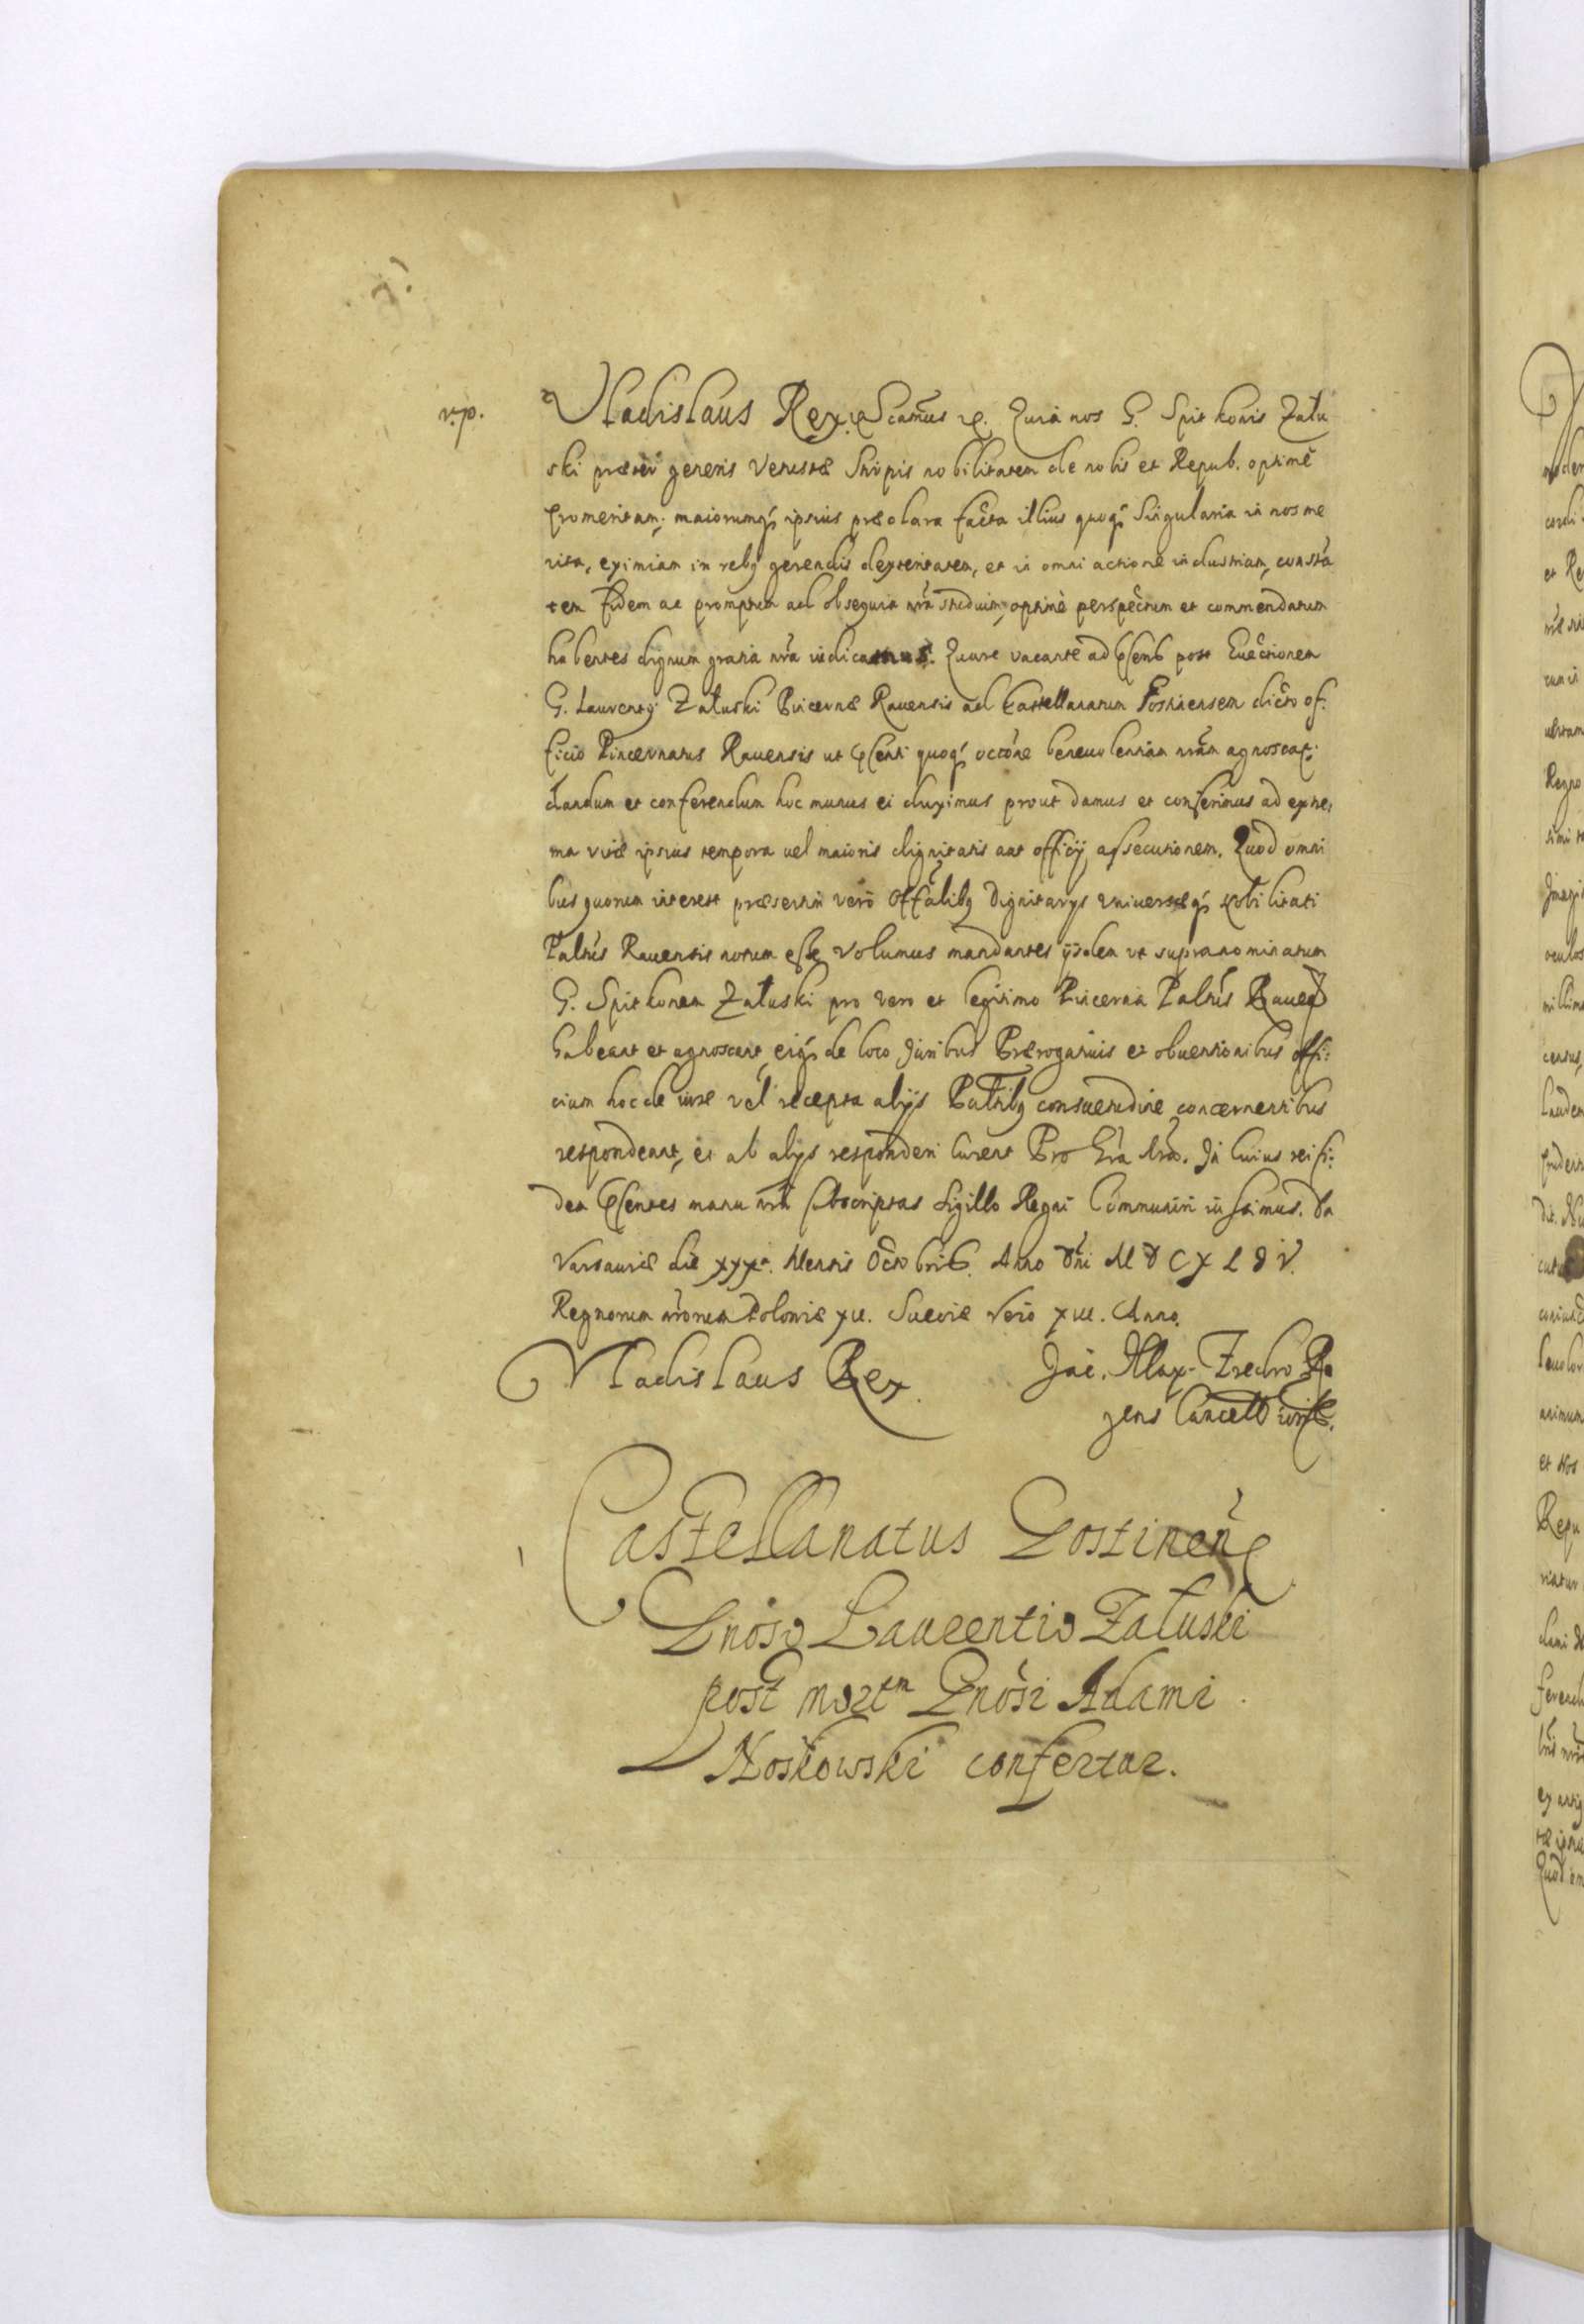 v.p.
Vladislaus Rex. Quia nos G. Spitkonis Zału
ski præter generis vetustæ stirpis nobilitatem de nobis et Repub. optimè
promeritam; maiorumq́ ipsius præclara facta illius quoq́ singularia in nos me
rita, eximiam in rebq gerendis dexteritatem, et in omni actione industriam, constā
tem fidem ac promptum ad obsequia nr̃a studium, optimè perspectum et commendatum
habentes dignum gratia nr̃a iudicamus. Quare vacante ad post Euectionem
G. Laurentij Załuski Pincernæ Rauensis ad Castellanatum dicto of:
ficio Pincernatus Rauensis ut quoq́ beneuolentiam nr̃am agnoscat:
dandum et conferendum hoc munus ei duximus prout damus et conferimus ad extre,
ma vitæ ipsius tempora uel maioris dignitatis aut officij assecutionem. Quod omni
bus quorum interest præsertim verò Offãlibq Dignitarijs vniuersæq́ Nobilitati
Paltũs Rauensis notum esse volumus mandantes ijsdem vt supranominatum
G. Spitkonem Załuski pro vero et legitimo Pincerna Paltũs
habeant et agnoscant, eiq́ de loco Juribus Prærogatiuis et obuentionibus offi:
cium hoc de iure vel recepta alijs Paltibq consuetudine concernentibus
respondeant, et ab alijs responderi curent Pro Grã Nrã. In cuius rei fi:
dem manu nrã subscriptas Sigillo Regni Communiri iussimus. Da
Varsauiæ die XXXa. Mensis Octobris. Anno Dñi M D C X L I V.
Regnorum nrorum Poloniæ XII. Sueciæ verò XIII. Anno.
Vladislaus Rex. Jac. Max. Fredro Re
gens Cancell
Castellanatus Gostinen̄
Gnõso Laurentio Załuski
post mortm Gnõsi Adami
Noskowski confertur.